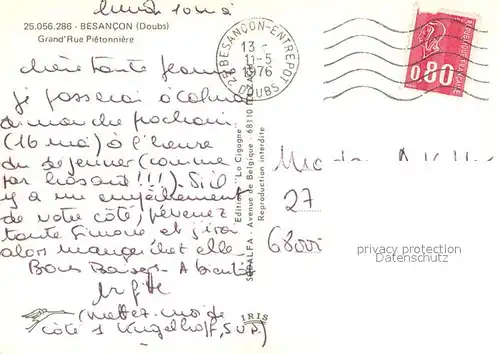 lundi 10 mai
25.056.286 - BESANÇON (Doubs)
Grand'Rue Piétonnière
BESANÇON-ENTREPOT
13 -
11-5
1976
DOUBS
RÉPUBLIQUE FRANÇAISE
0,80
Chère tante Jeanne
je passerai à Colmar
dimanche prochain
(16 mai) à l'heure
du déjeuner (comme
par hasard !!!). S'il
y a un empêchement
de votre côté, prévenez
tante Simone et j'irai
alors manger chez elle.
Bons Baisers - A bientôt
(mettez-moi de
côté 1 Kugelhopf, S.V.P.)
Editions "La Cigogne"
SODALFA - Avenue de Belgique - 68110
Reproduction interdite
IRIS
27
68000
privacy protection
Datenschutz